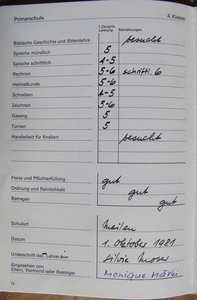 Primarschule 4. Klasse
1. Zeugnis Leistung Bemerkungen
Biblische Geschichte und Sittenlehre besucht
Sprache mündlich 5
Sprache schriftlich 4-5
Rechnen 5-6 schriftl. 6
Heimatkunde 5-6
Schreiben 4-5
Zeichnen 5-6
Gesang 5
Turnen 5
Handarbeit für Knaben besucht
Fleiss und Pflichterfüllung gut
Ordnung und Reinlichkeit gut
Betragen gut
Schulort Meilen
Datum 1. Oktober 1981
Unterschrift der Lehrerin Silvia Moser
Eingesehen von
Eltern, Vormund oder Besorger Monique
12